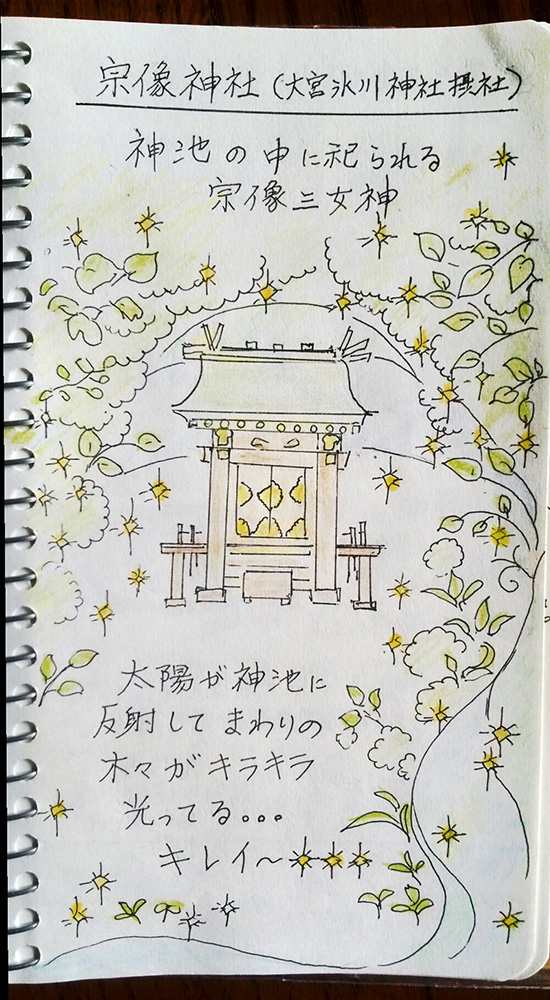 宗像神社(大宮氷川神社摂社)
神池の中に祀られる
宗像三女神
太陽が神池に
反射してまわりの
木々がキラキラ
光ってる...
キレイ〜